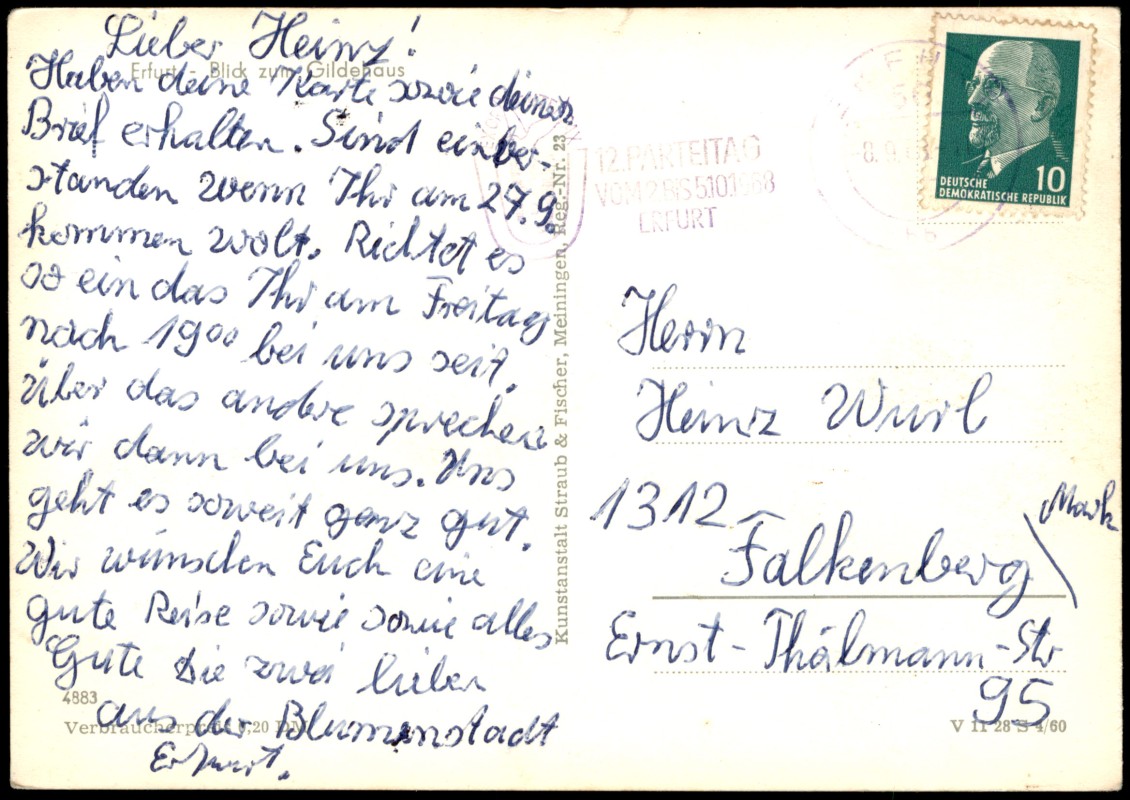 Lieber Heinz!
Erfurt - Blick zum Gildehaus
Haben deine Karte sowie deinen
Brief erhalten. Sind einver-
standen wenn Ihr am 27.9.
kommen wolt. Richtet es
so ein das Ihr am Freitag
nach 19⁰⁰ bei uns seit.
über das andre sprechen
wir dann bei uns. Uns
geht es soweit ganz gut.
Wir wünschen Euch eine
gute Reise sowie sowie alles
Gute Die zwei lieben
aus der Blumenstadt
Erfurt.
4883
Verbraucherpreis 0,20 DM
Kunstanstalt Straub & Fischer, Meiningen, Reg.-Nr. 23
12. PARTEITAG
VOM 2. BIS 5.10.1968
ERFURT
-8.9.68
10
DEUTSCHE
DEMOKRATISCHE REPUBLIK
Herrn
Heinz Wurl
1312
Falkenberg / Mark
Ernst-Thälmann-Str
95
V 11 28 S 4/60